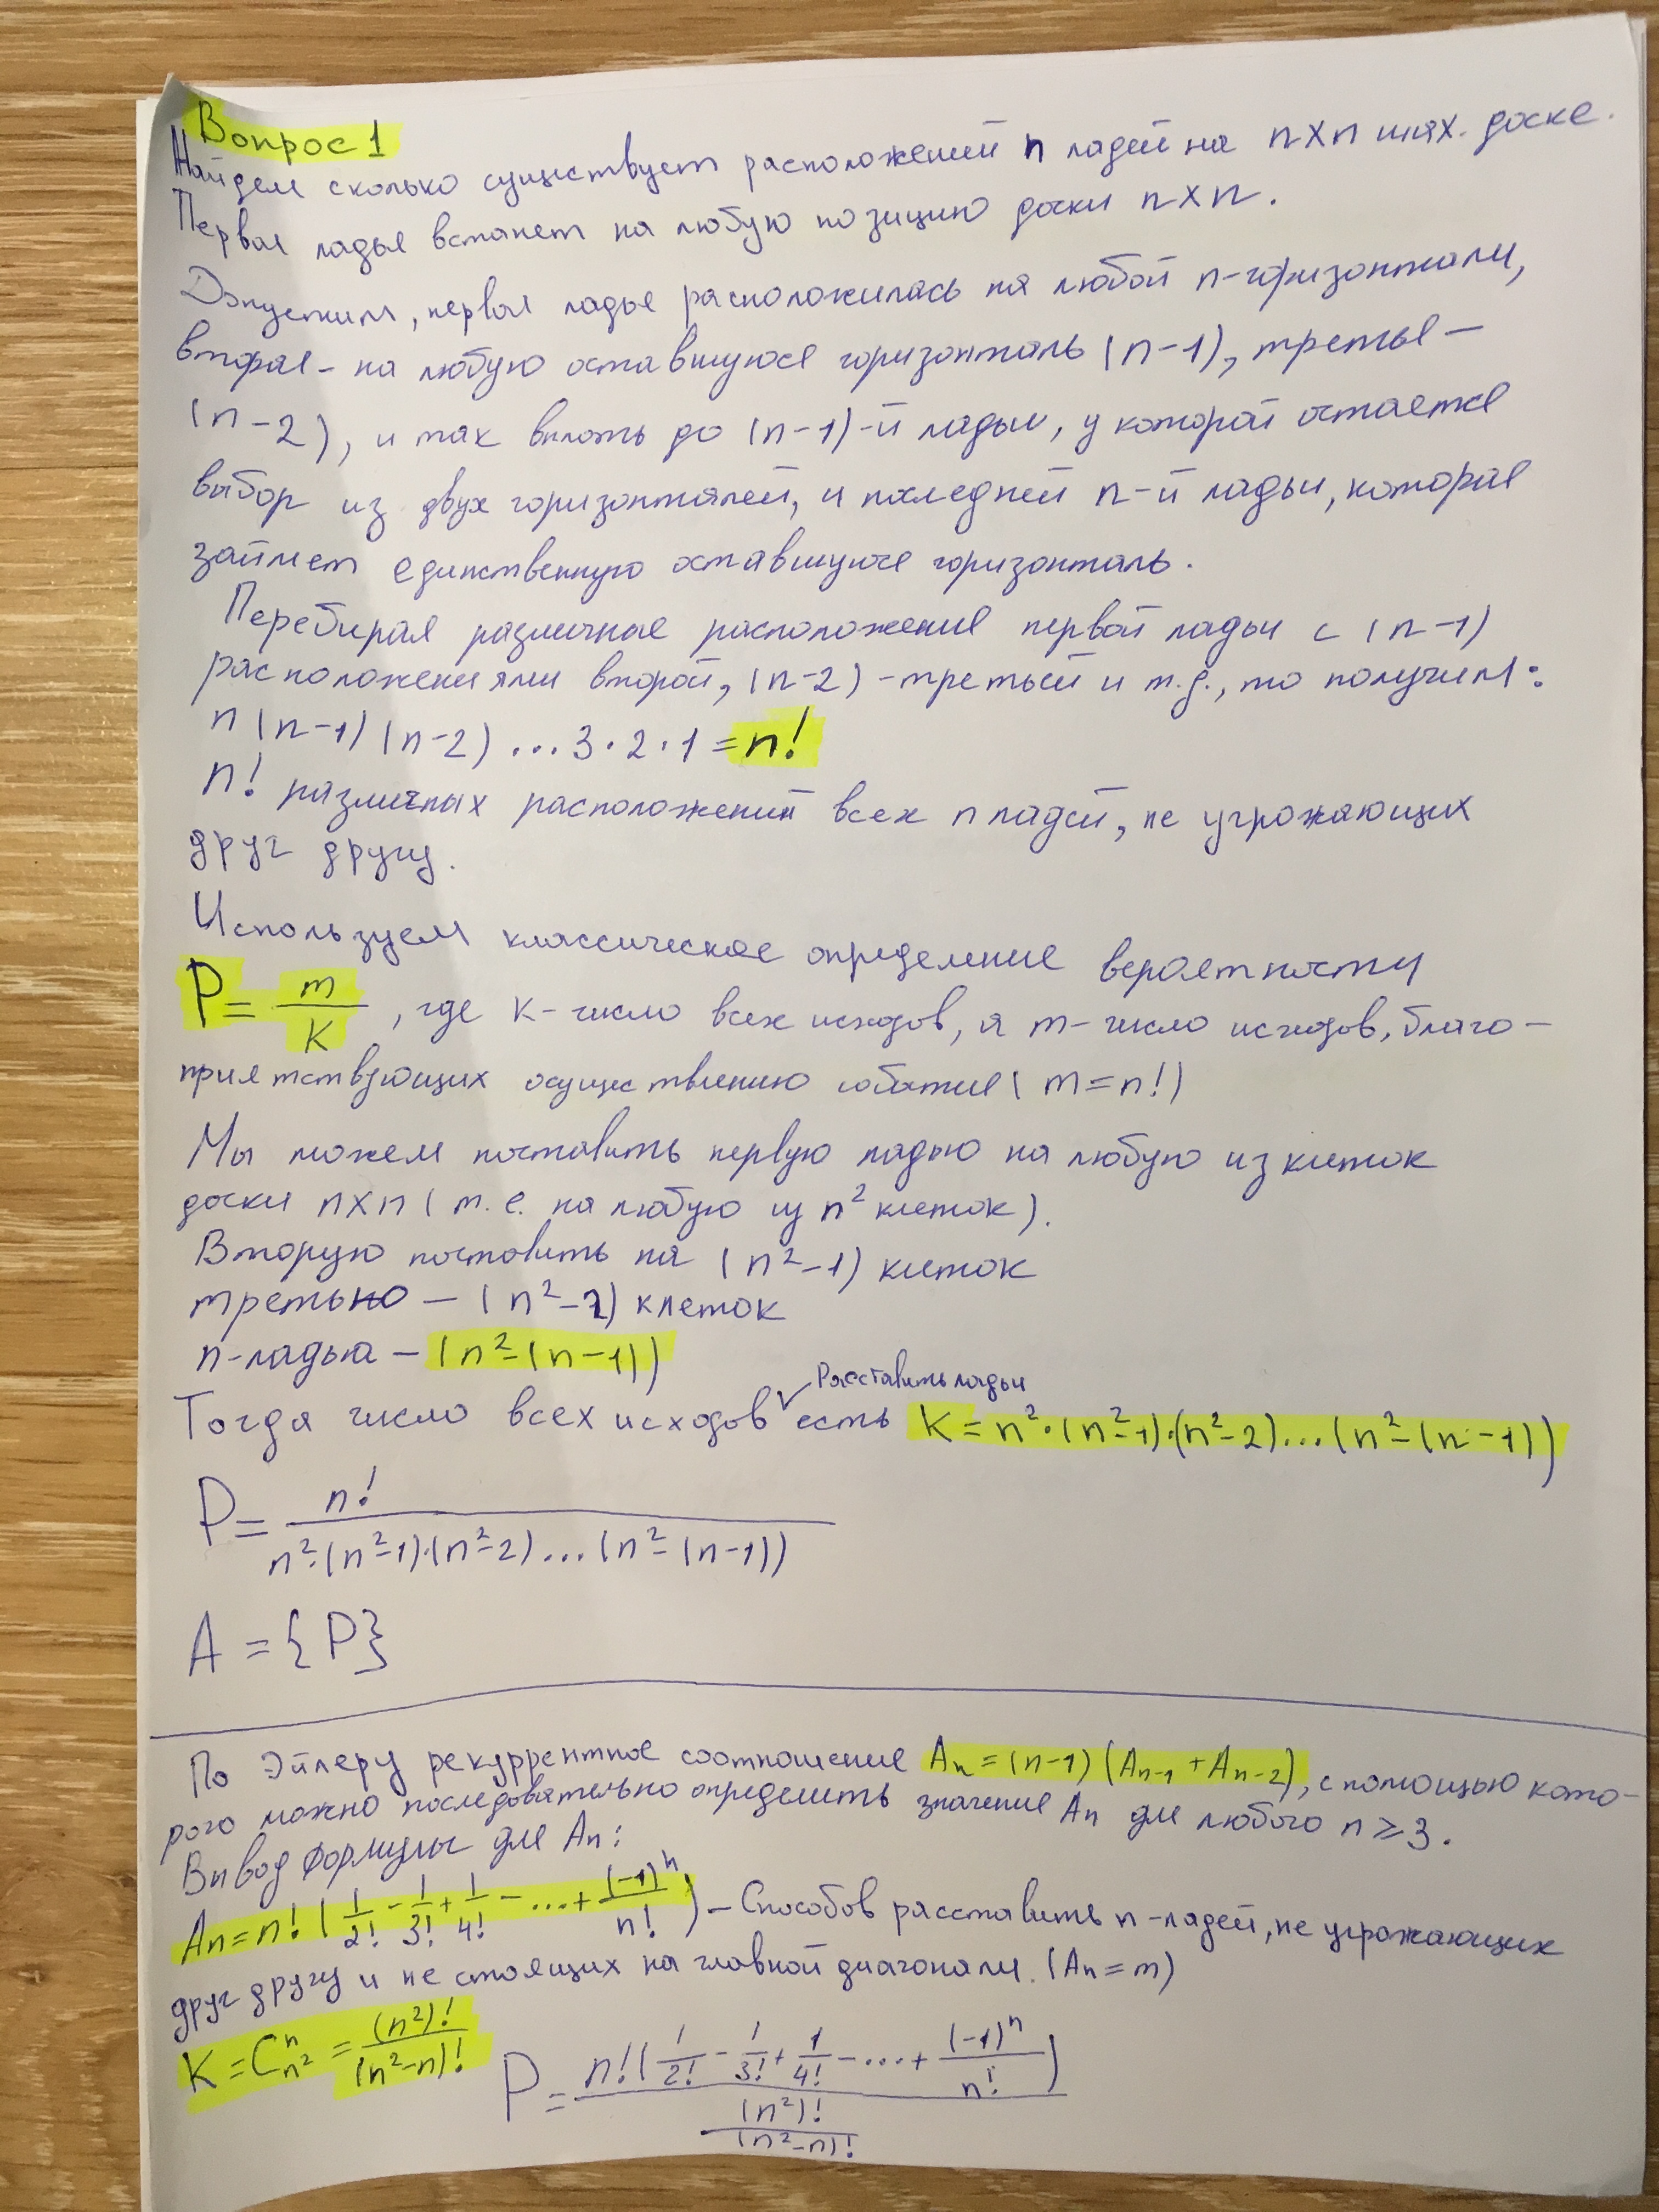 Вопрос 1
Найдем сколько существует расположений n ладей на n×n шах. доске.
Первая ладья встанет на любую позицию доски n×n.
Допустим, первая ладья расположилась на любой n-горизонтали,
вторая - на любую оставшуюся горизонталь (n-1), третья -
(n-2), и так вплоть до (n-1)-й ладьи, у которой остается
выбор из двух горизонталей, и последней n-й ладьи, которая
займет единственную оставшуюся горизонталь.
Перебирая различные расположения первой ладьи с (n-1)
расположениями второй, (n-2) - третьей и т.д., то получим:
n(n-1)(n-2)...3·2·1 = n!
n! различных расположений всех n ладей, не угрожающих
друг другу.
Используем классическое определение вероятности
P = m/K, где K - число всех исходов, а m - число исходов, благо-
приятствующих осуществлению события (m = n!)
Мы можем поставить первую ладью на любую из клеток
доски n×n (т.е. на любую из n² клеток).
Вторую поставить на (n²-1) клеток
третью - (n²-2) клеток
n-ладья - (n²-(n-1))
Расставить ладьи
Тогда число всех исходов ✓ есть K = n²·(n²-1)·(n²-2)...(n²-(n-1))
P = n! / n²·(n²-1)·(n²-2)...(n²-(n-1))
A = {P}
По Эйлеру рекуррентное соотношение Aₙ = (n-1)(Aₙ₋₁ + Aₙ₋₂), с помощью кото-
рого можно последовательно определить значение Aₙ для любого n ≥ 3.
Вывод формулы для Aₙ:
Aₙ = n! (1/2! - 1/3! + 1/4! - ... + (-1)ⁿ/n!) - Способов расставить n-ладей, не угрожающих
друг другу и не стоящих на главной диагонали. (Aₙ = m)
K = Cⁿₙ² = (n²)!/(n²-n)!
P = n!(1/2! - 1/3! + 1/4! - ... + (-1)ⁿ/n!) / (n²)!/(n²-n)!